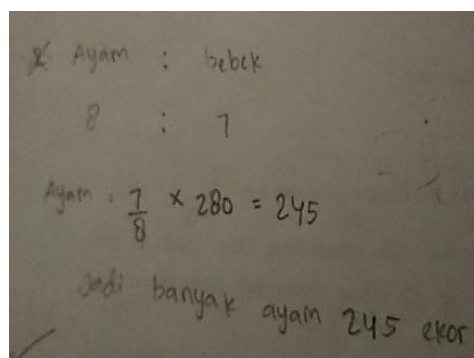 Ayam : bebek
8 : 7
Ayam : 7/8 × 280 = 245
Jadi banyak ayam 245 ekor